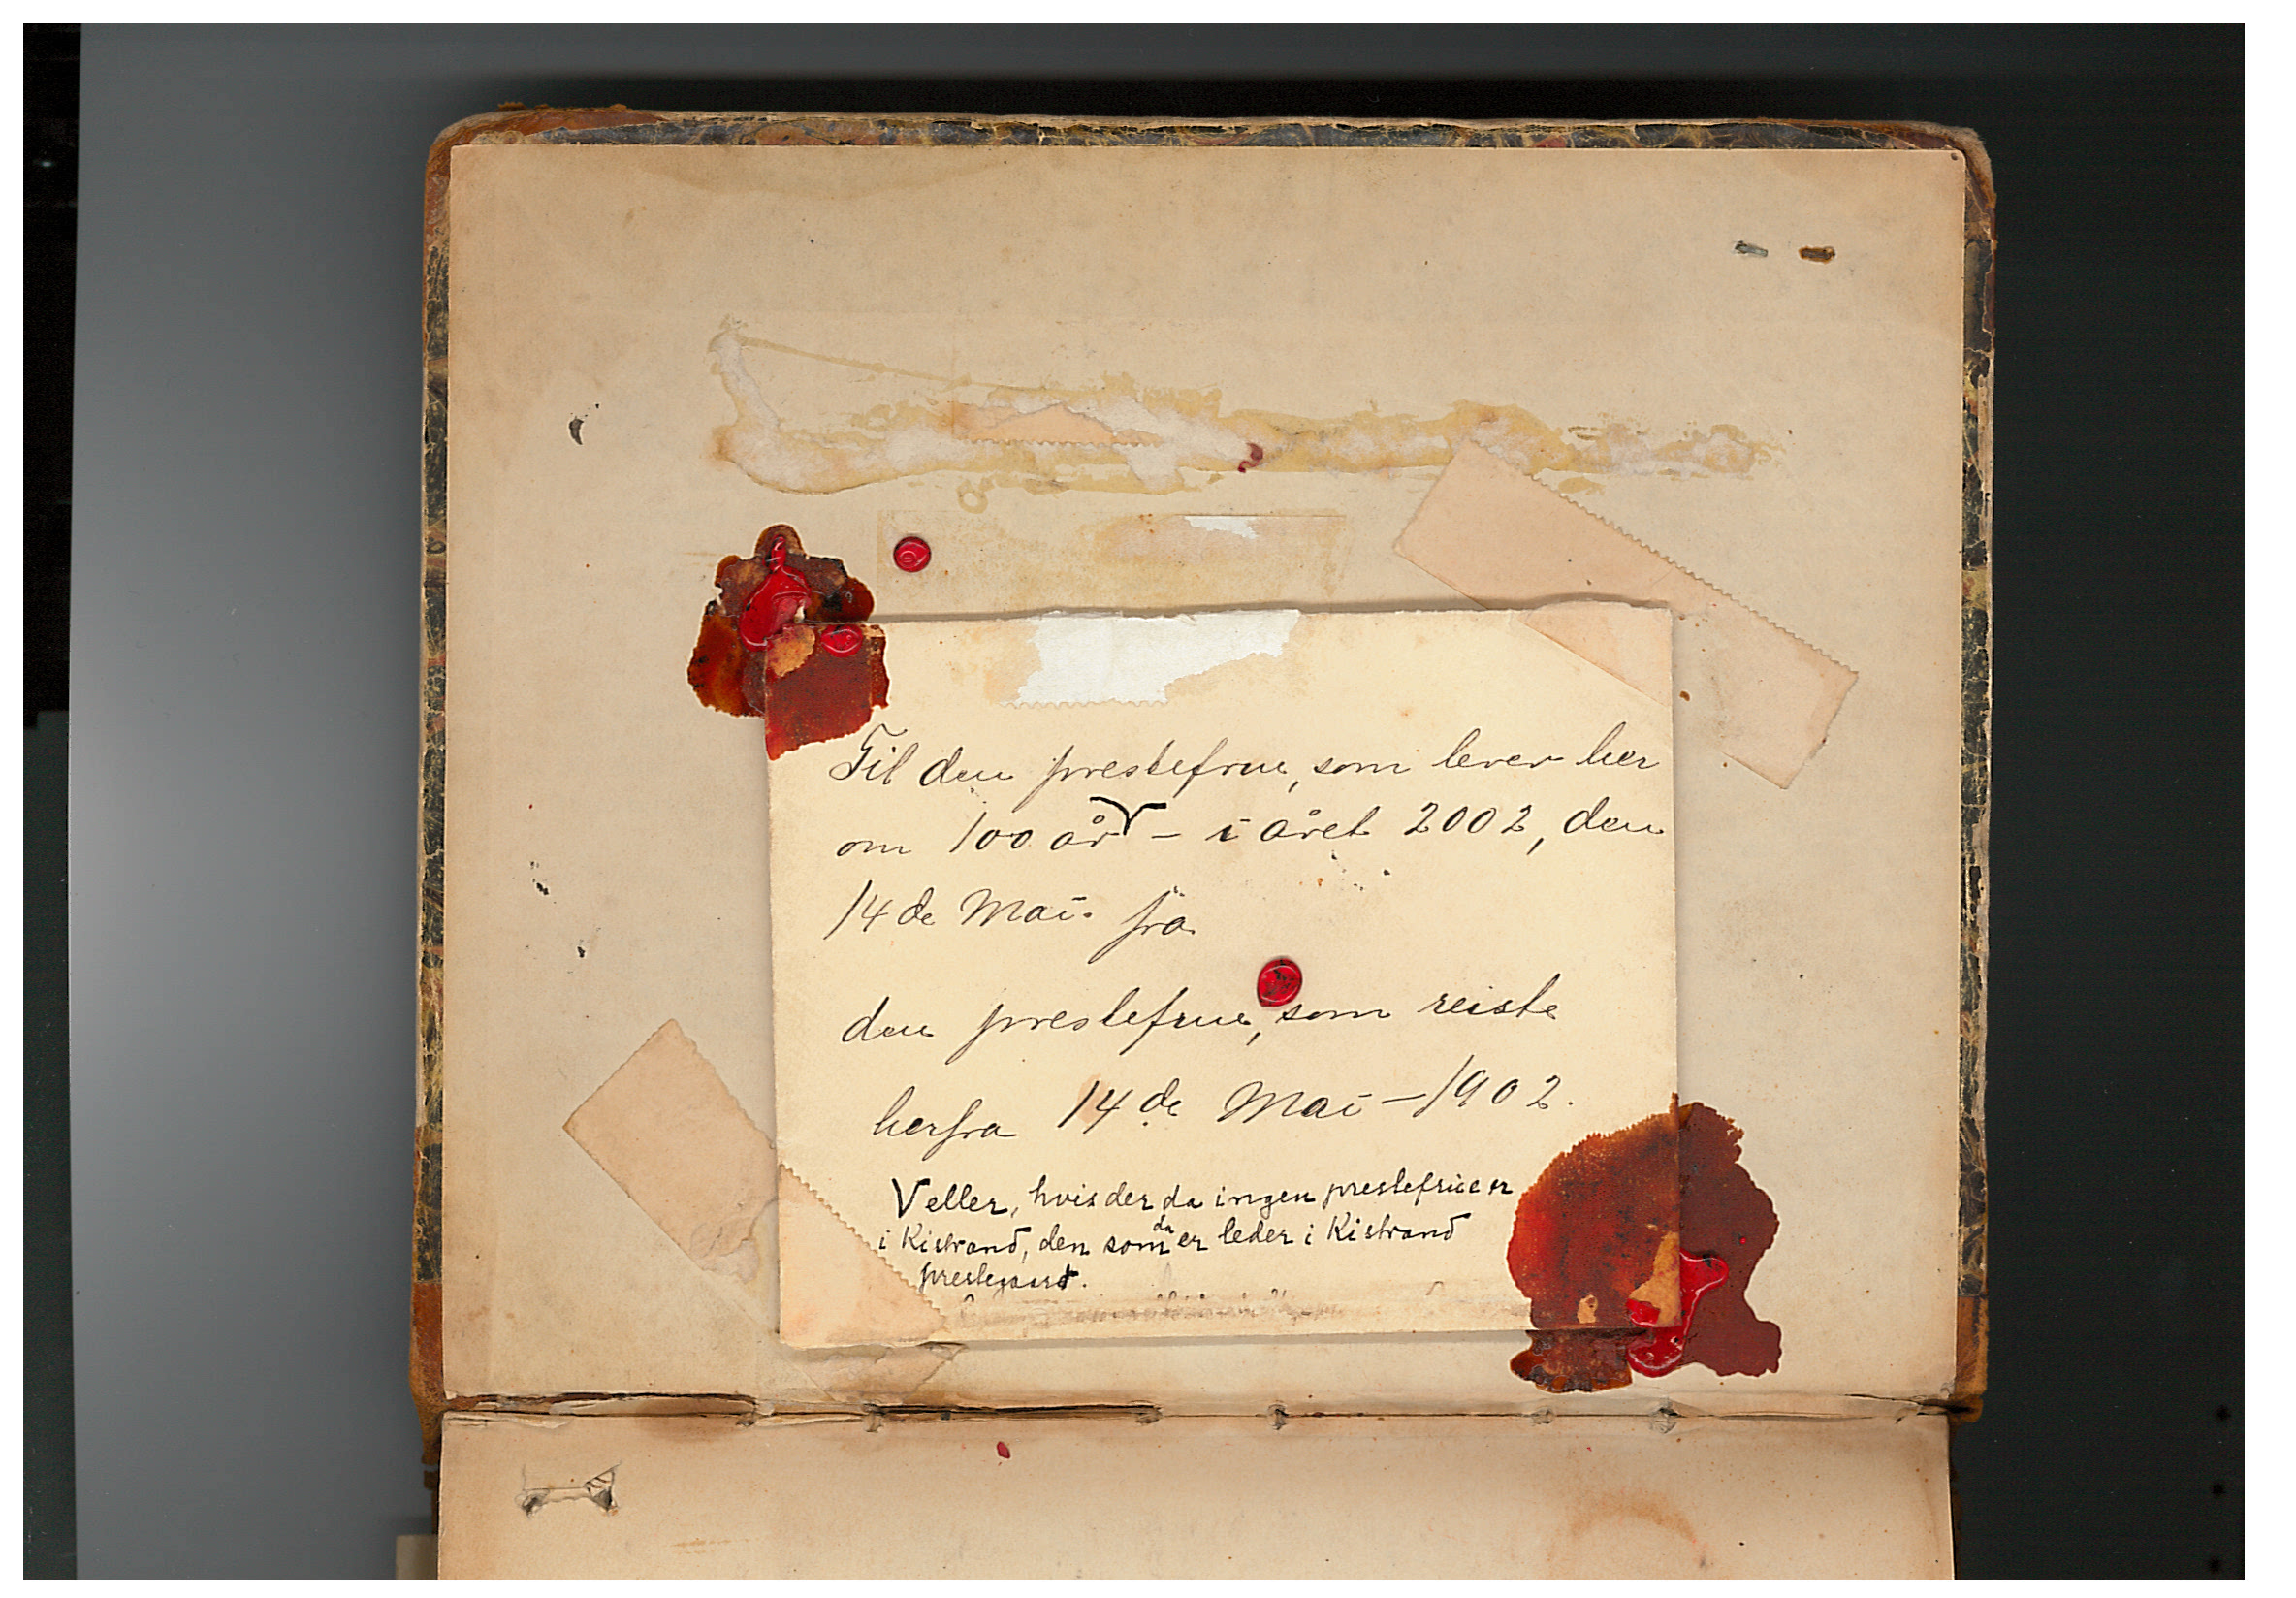 Til den prestefrue, som lever her
om 100 år V – i året 2002, den
14 de Mai. fra
den prestefrue, som reiste
herfra 14 de Mai – 1902.
V eller, hvis der da ingen prestefrue er
i Kistrand, den som da er leder i Kistrand
prestegaard.